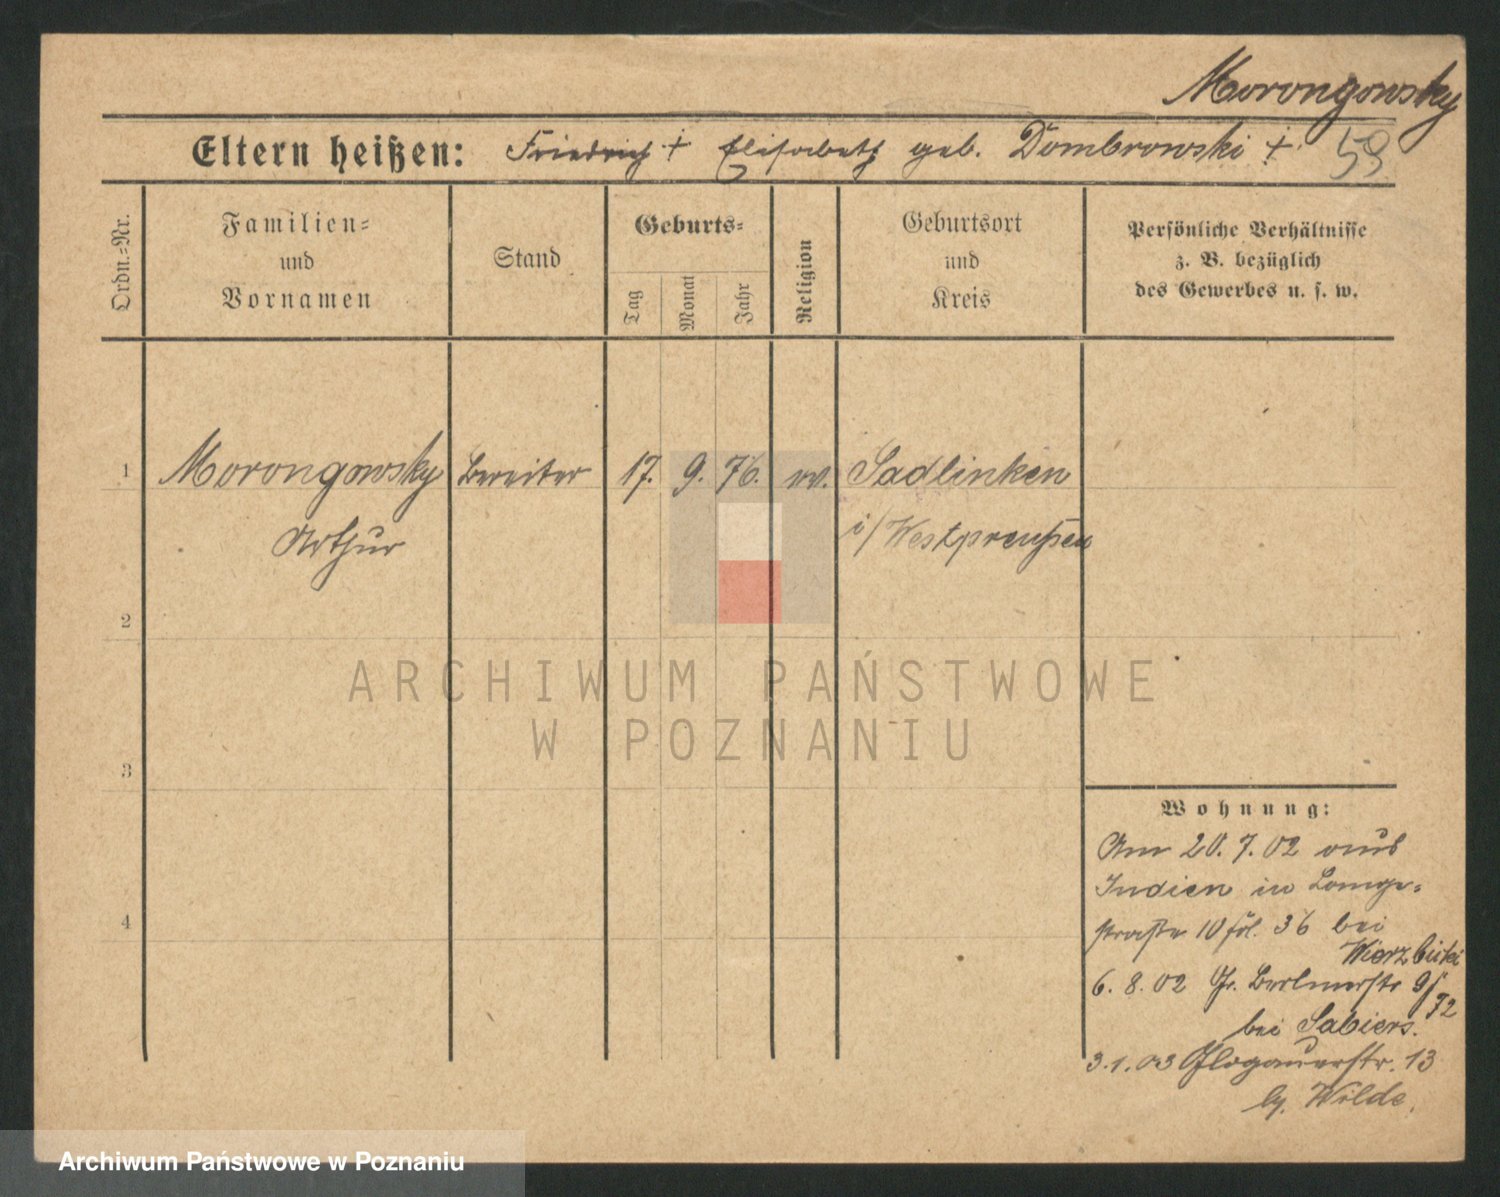 Morongowsky
Eltern heißen: Friedrich + Elisabeth geb. Dombrowski +
59
Ordn.-Nr.
Familien-
und
Vornamen
Stand
Geburts-
Tag
Monat
Jahr
Religion
Geburtsort
und
Kreis
Persönliche Verhältnisse
z. B. bezüglich
des Gewerbes u. s. w.
1 Morongowsky Bereiter 17. 9. 76. ev. Sadlinken
Arthur i/Westpreußen
2
3
4
ARCHIWUM PAŃSTWOWE
W POZNANIU
Wohnung:
Am 20.7.02 aus
Indien in Lange-
straße 10 fol. 36 bei
Wierzbicki
6.8.02 Gr. Berlinerstr 9/72
bei Sabiers.
3.1.03 Glogauerstr. 13
b/ Wilde.
Archiwum Państwowe w Poznaniu